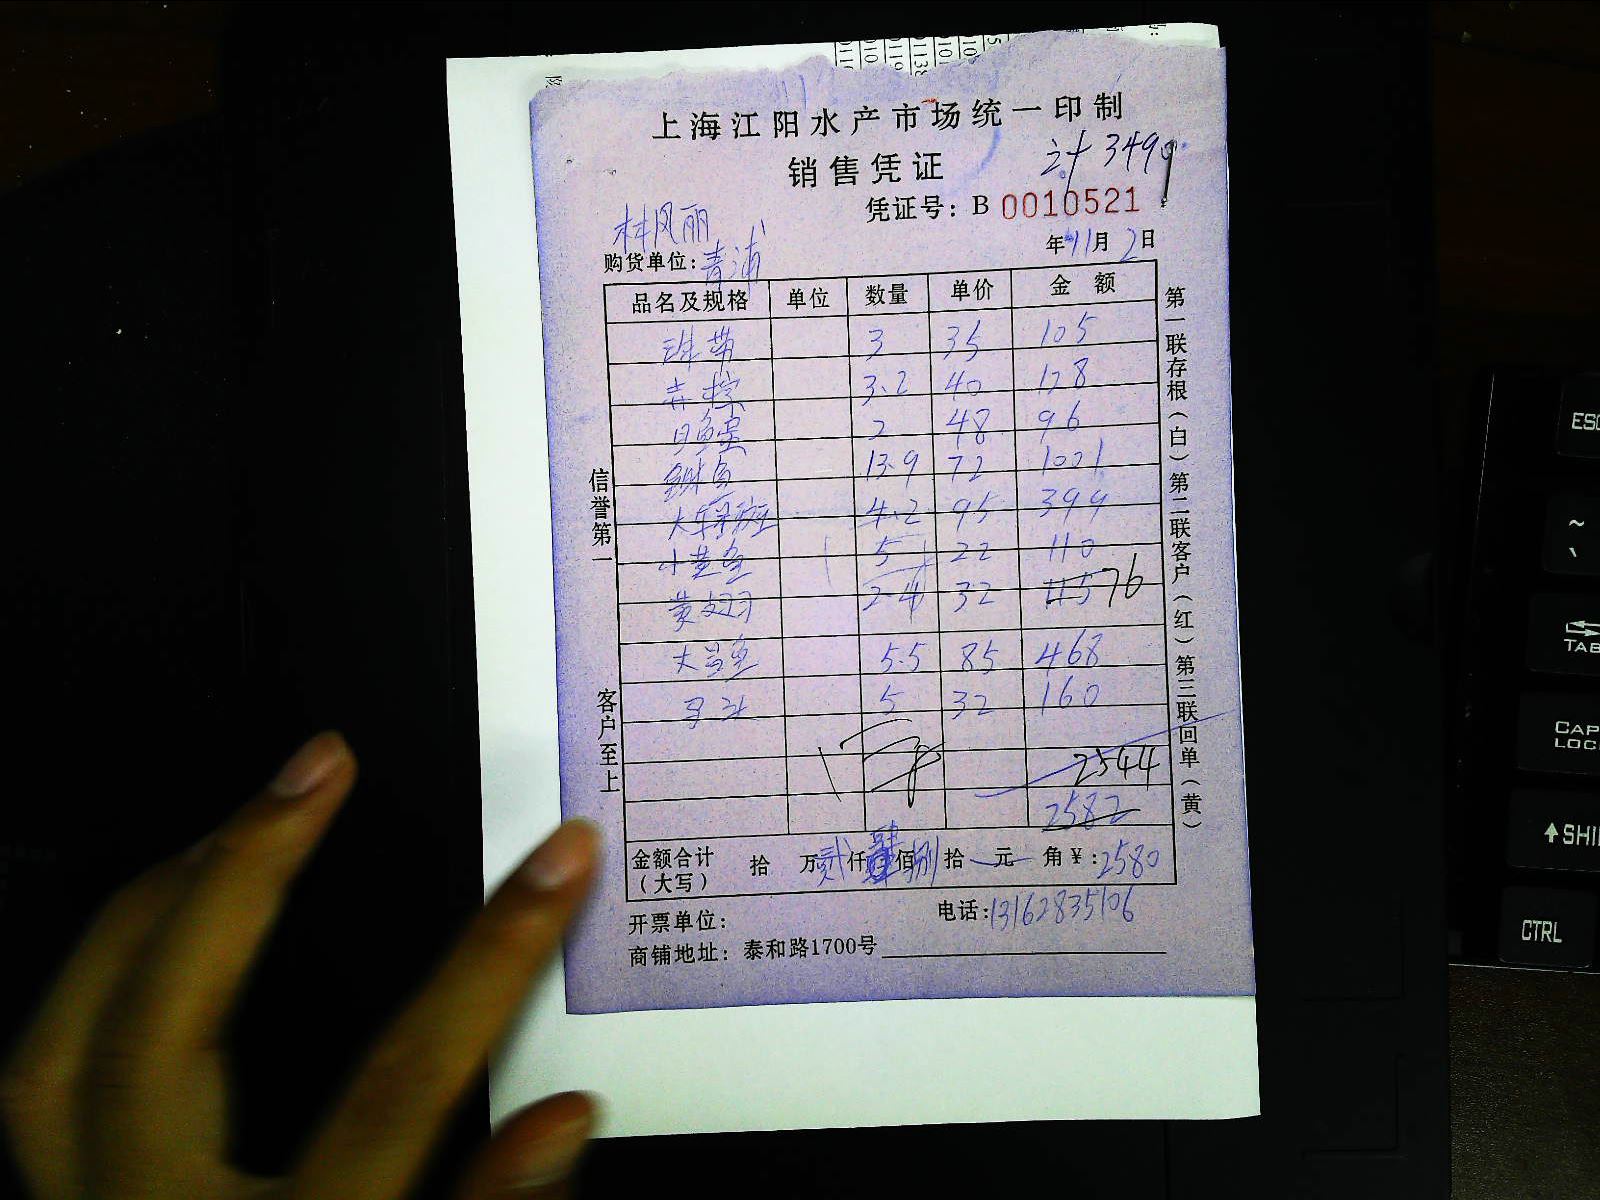 上海江阳水产市场统一印制
销售凭证
计 3490
凭证号: B 0010521
林凤丽
年 11月 2日
购货单位: 青浦
品名及规格 单位 数量 单价 金额
3 35 105
3.2 40 128
2 48 96
13.9 72 1001
4.2 95 399
小黄鱼 5 22 110
黄翅 2.4 32 76
大昌鱼 5.5 85 468
马头 5 32 160
2544
2582
金额合计 拾 万 贰仟 佰 捌拾 元 角 ¥: 2580
(大写)
开票单位:
电话: 13162835106
商铺地址: 泰和路1700号
信誉第一
客户至上
第一联存根(白)第二联客户(红)第三联回单(黄)
ESC
~
TAB
CAP
LOC
SHI
CTRL